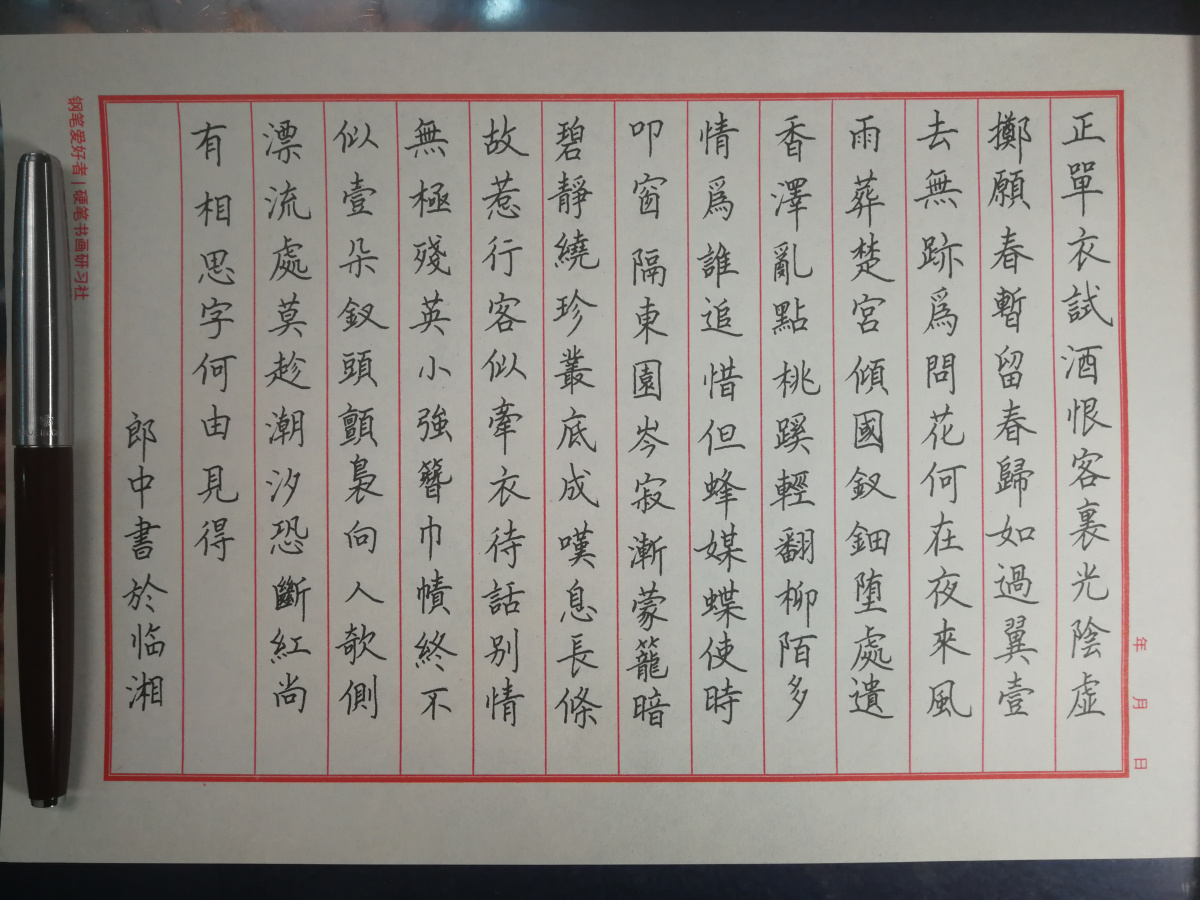 正單衣試酒恨客裏光陰虛
擲願春暫留春歸如過翼壹
去無跡爲問花何在夜來風
雨葬楚宮傾國釵鈿墮處遺
香澤亂點桃蹊輕翻柳陌多
情爲誰追惜但蜂媒蝶使時
叩窗隔東園岑寂漸蒙籠暗
碧靜繞珍叢底成嘆息長條
故惹行客似牽衣待話別情
無極殘英小強簪巾幘終不
似壹朵釵頭顫裊向人欹側
漂流處莫趁潮汐恐斷紅尚
有相思字何由見得
郎中書於临湘
年 月 日
钢笔爱好者 | 硬笔书画研习社